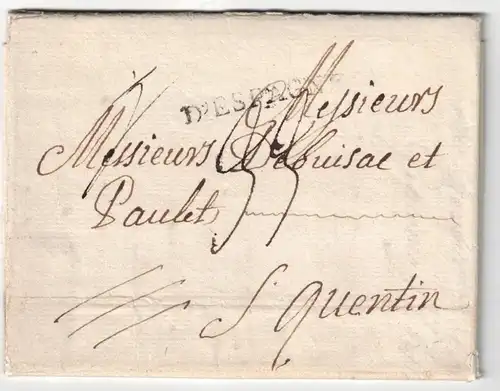 D'ESPAGNE
Messieurs
Messieurs Debuisac et
Paulet
S Quentin